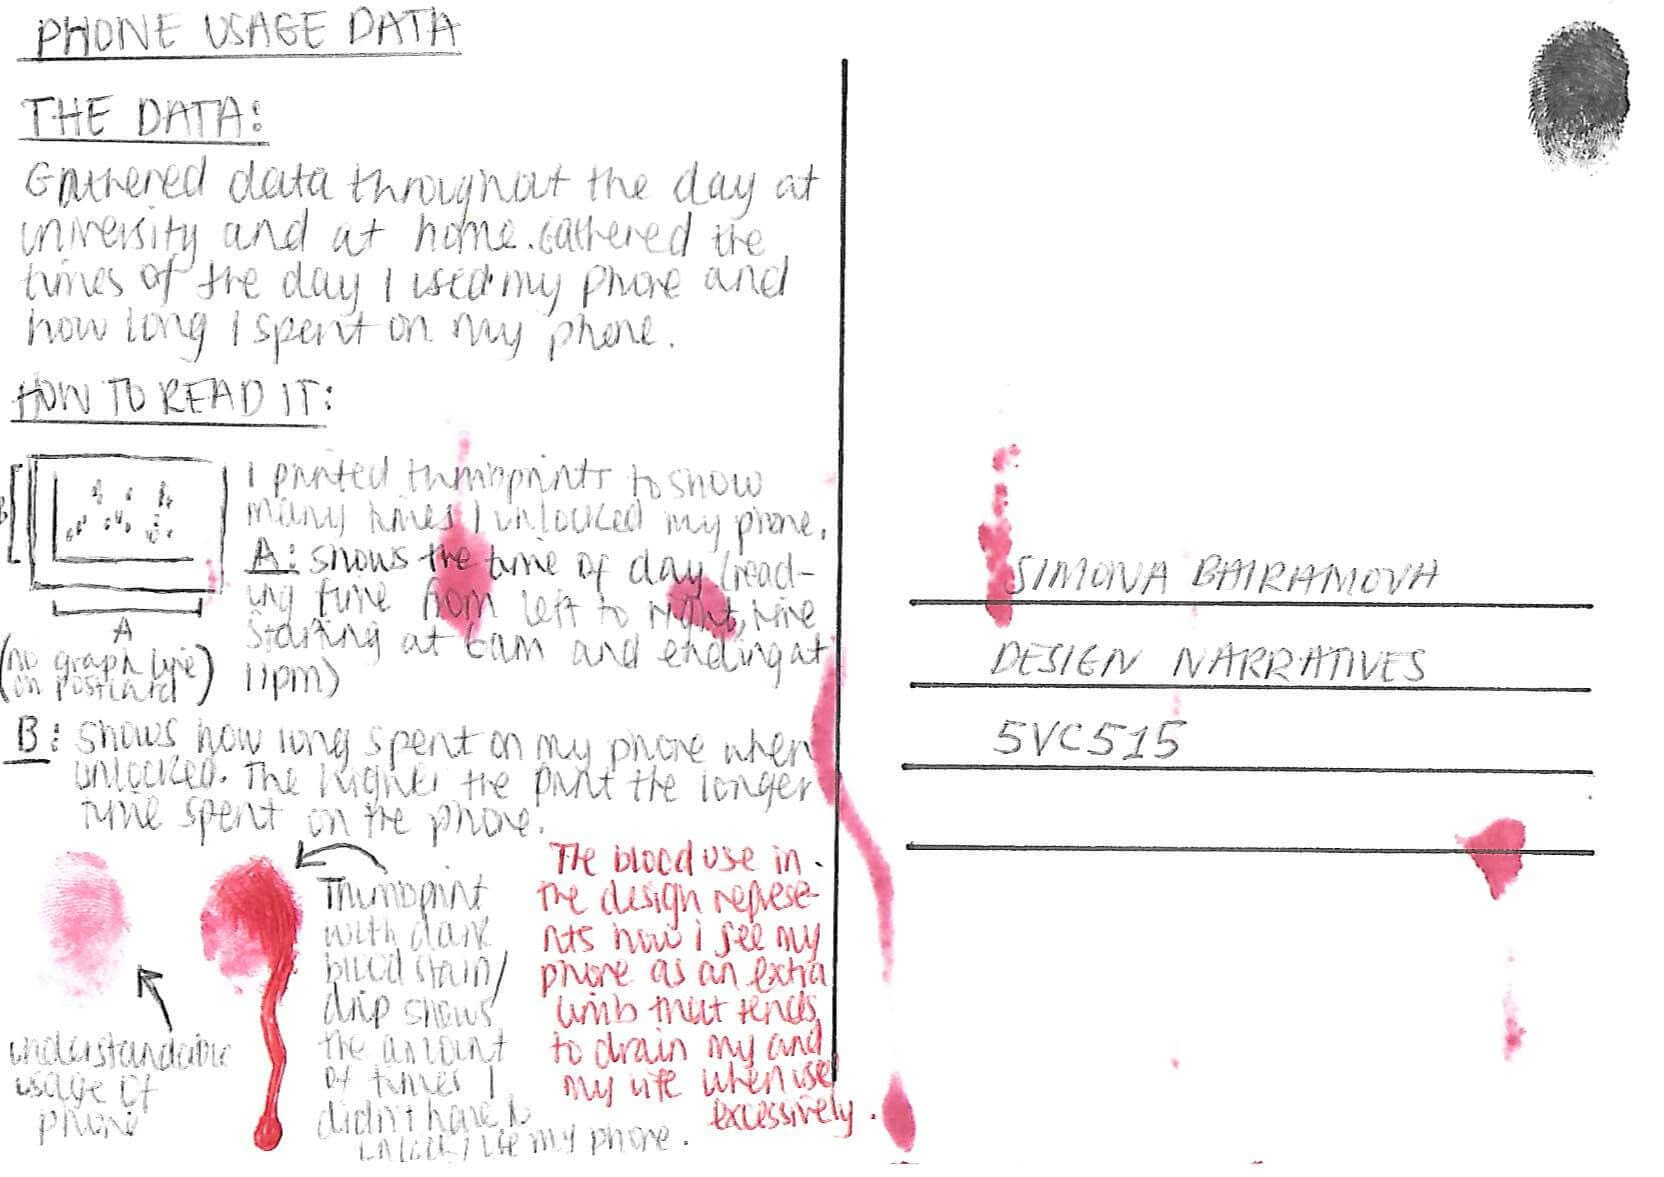 PHONE USAGE DATA
THE DATA:
Gathered data throughout the day at
university and at home. Gathered the
times of the day I used my phone and
how long I spent on my phone.
HOW TO READ IT:
B
A
(no graph line
on postcard)
I printed thumbprints to show
many times I unlocked my phone.
A: shows the time of day (read-
ing time from left to right, time
starting at 6am and ending at
11pm)
B: shows how long spent on my phone when
unlocked. The higher the print the longer
time spent on the phone.
understandable
usage of
phone
Thumbprint
with dark
blood stain/
drip shows
the amount
of times I
didn't have to
unlock/use my phone.
The blood use in
the design represe-
nts how i see my
phone as an extra
limb that tends
to drain my and
my life when use
excessively.
SIMONA BAIRAMOVA
DESIGN NARRATIVES
5VC515